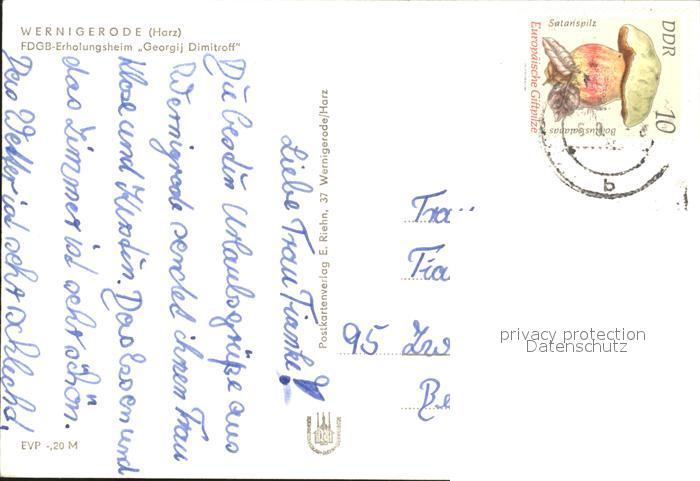 WERNIGERODE (Harz)
FDGB-Erholungsheim „Georgij Dimitroff"
Liebe Frau Tiamke!
Die besten Urlaubsgrüße aus
Wernigerode sendet ihnen Frau
Klose und Kirsten. Das Essen und
das Zimmer ist sehr schön.
Das Wetter ist sehr schlecht.
Postkartenverlag E. Riehn, 37 Wernigerode/Harz
EVP -,20 M
Satanspilz
DDR
Europäische Giftpilze
Boletus satanas
10
b
Fra
Tia
95 Zw
Be
privacy protection
Datenschutz